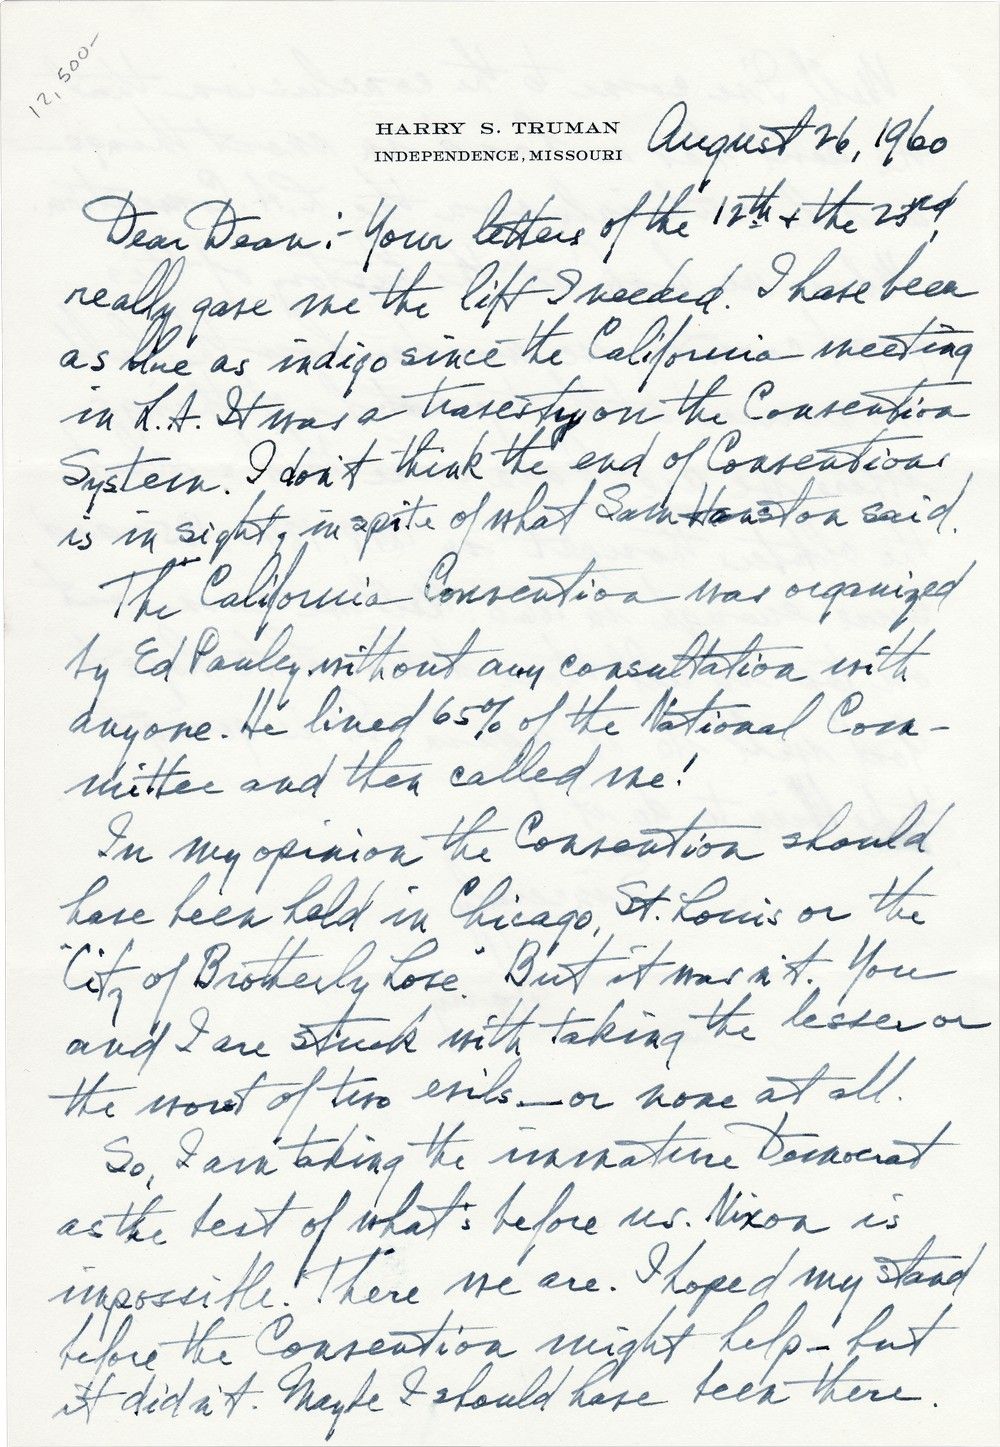 12,500-
HARRY S. TRUMAN
INDEPENDENCE, MISSOURI
August 26, 1960
Dear Dean:- Your letters of the 12th + the 23rd,
really gave me the lift I needed. I have been
as blue as indigo since the California meeting
in L.A. It was a travesty on the Convention
System. I don't think the end of Conventions
is in sight, in spite of what Sam Houston said.
The California Convention was organized
by Ed Pauley without any consultation with
anyone. He lined 65% of the National Com-
mittee and then called me!
In my opinion the Convention should
have been held in Chicago, St. Louis or the
"City of Brotherly Love." But it was n't. You
and I are stuck with taking the lesser or
the worst of two evils—or none at all.
So, I am taking the immature Democrat
as the best of what's before us. Nixon is
impossible. There we are. I hoped my stand
before the Convention might help - but
it did n't. Maybe I should have been there.